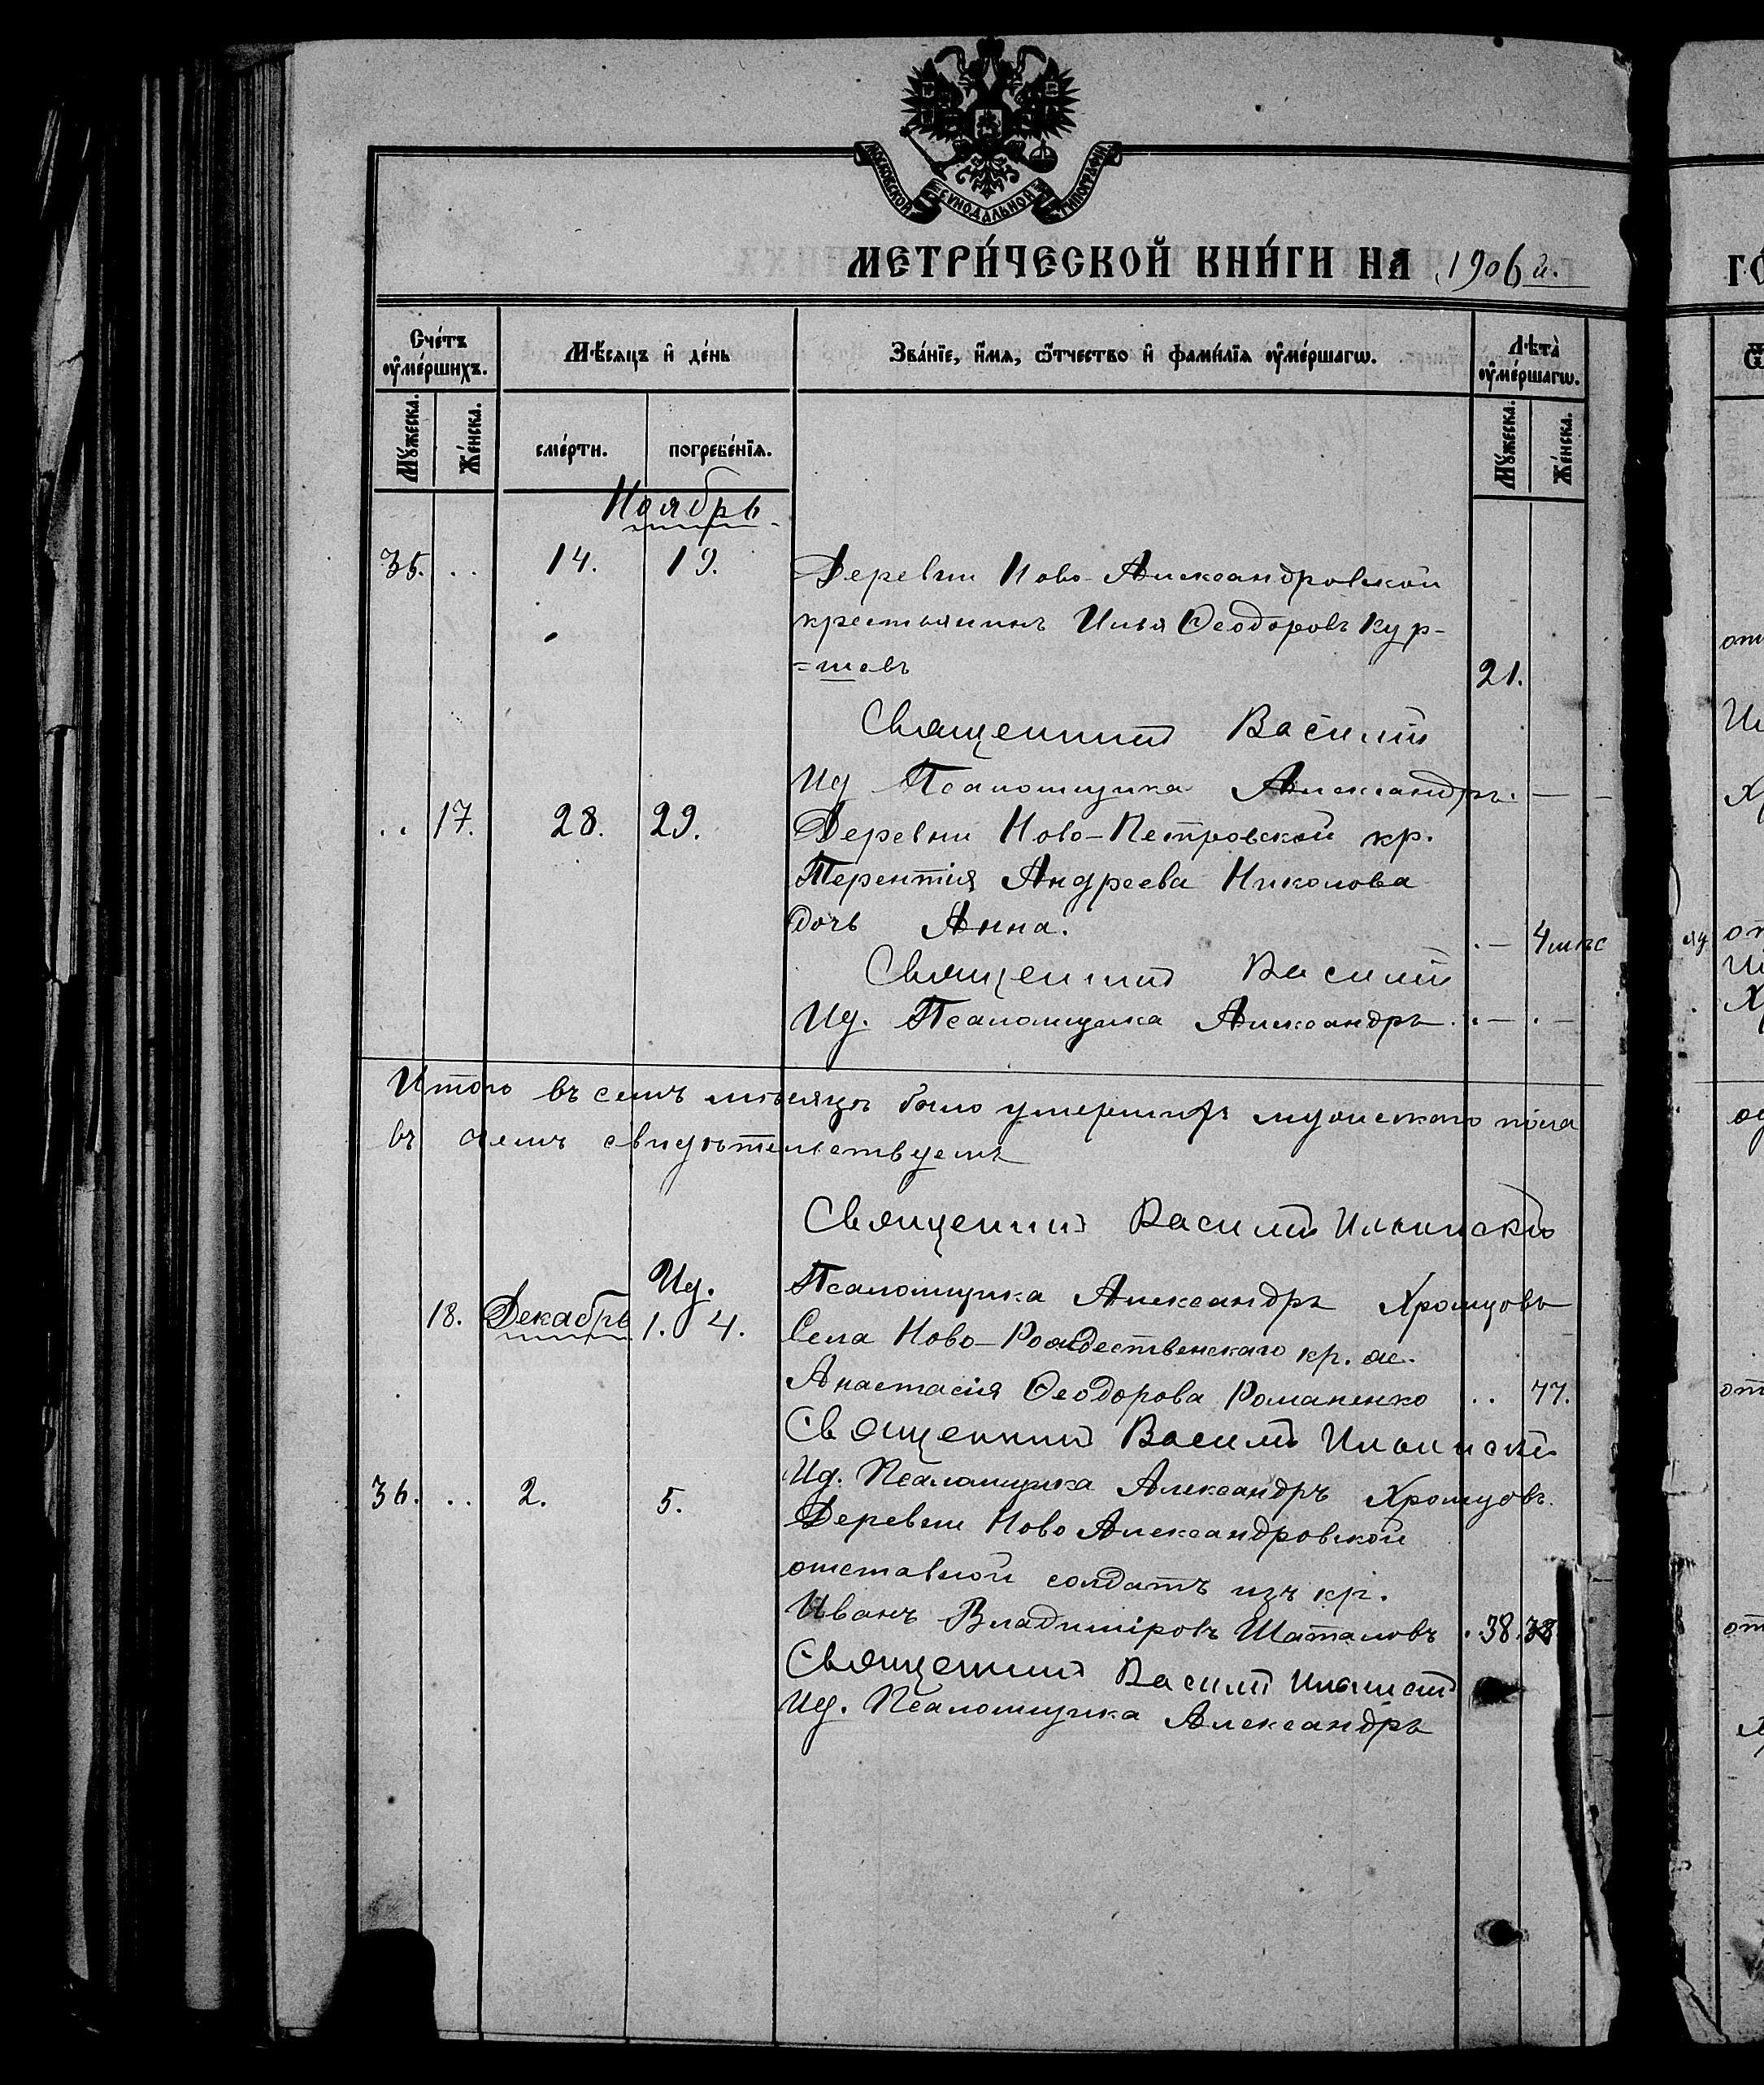 МОСКОВСКОЙ СѴНОДАЛЬНОЙ ТИПОГРАФІИ
МЕТРИ́ЧЕСКОЙ КНИ́ГИ НА 1906 й.
Сче́тъ ᲂу҆ме́ршихъ.
Мѣ́сяцъ и҆ де́нь
Зва́нїе, и҆́мя, ѻ҆́тчество и҆ фами́лїя ᲂу҆ме́ршагѡ.
Лѣ́та ᲂу҆ме́ршагѡ.
Мꙋ́жеска. Же́нска.
сме́рти. погребе́нїя.
Мꙋ́жеска. Же́нска.
Ноябрь
35. .. 14. 19. Деревни Ново-Александровской
крестьянинъ Илья Ѳеодоровъ Кур-
=шевъ 21.
Священникъ Василій
Ид Псаломщика Александръ. — —
.. 17. 28. 29. Деревни Ново-Петровской кр.
Терентія Андреева Николова
дочь Анна. .— 4 мѣс
Священникъ Василій
Ид. Псаломщика Александръ. .— .—
Итого въ семъ мѣсяцѣ было умершихъ мужскаго пола
въ чемъ свидѣтельствуемъ
Священникъ Василій Ильинскій
Ид. Псаломщика Александръ Хромцовъ
18. Декабрь 1. 4. Села Ново-Рождественскаго кр. ж.
Анастасія Ѳеодорова Романенко .. 77.
Священникъ Василій Ильинскій
Ид. Псаломщика Александръ Хромцовъ.
36. .. 2. 5. Деревни Ново Александровской
отставной солдатъ изъ кр.
Иванъ Владиміровъ Шаталовъ . 38. 38
Священникъ Василій Ильинскій
Ид. Псаломщика Александръ